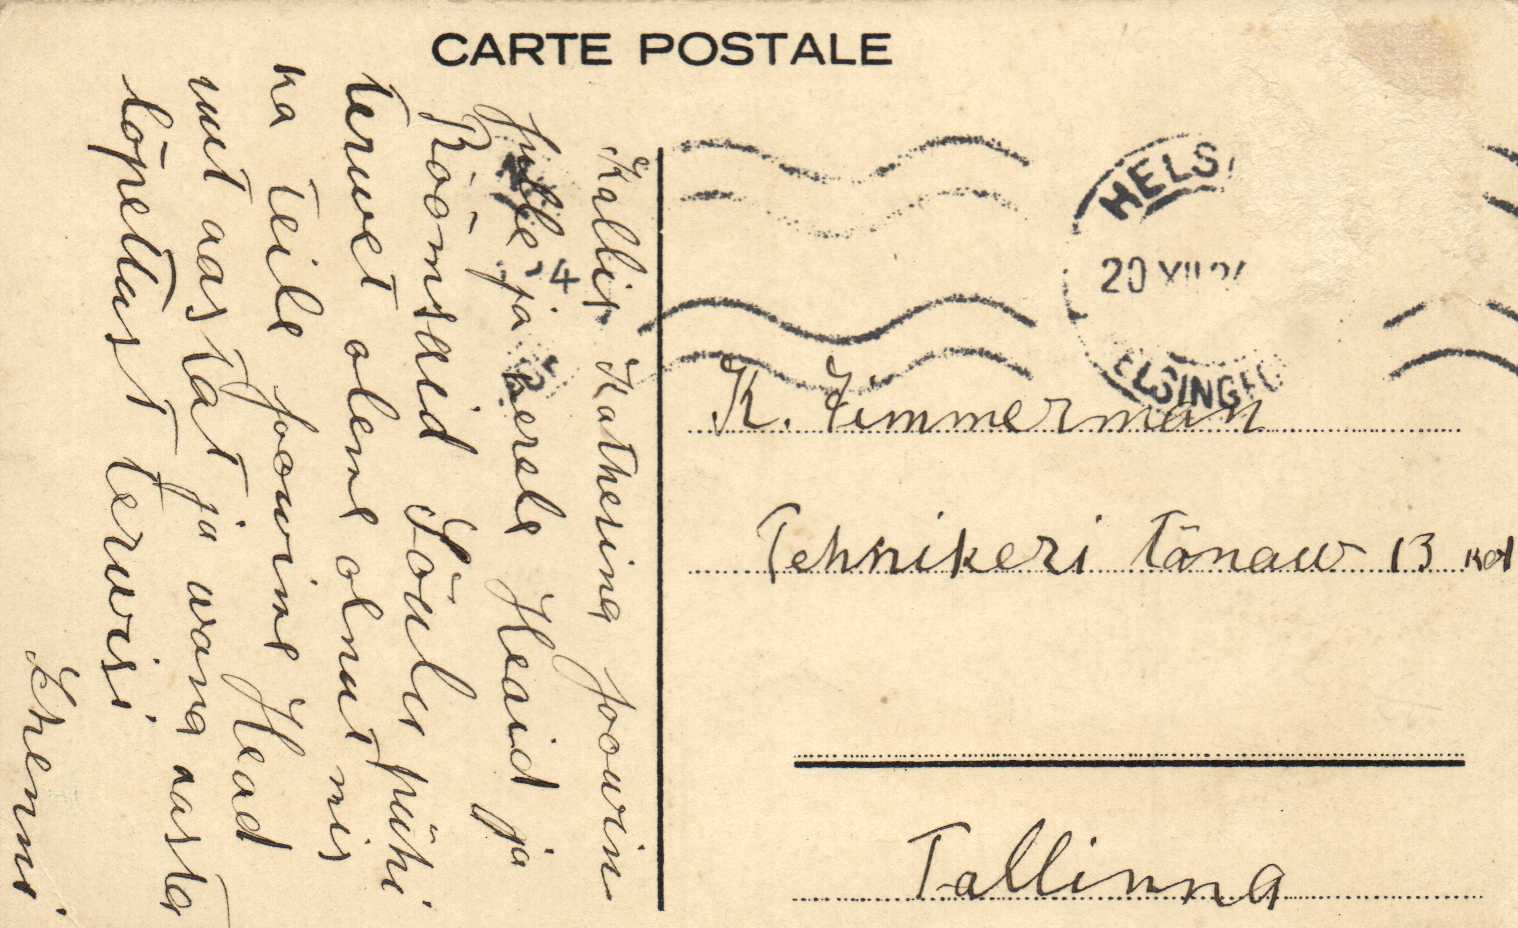 CARTE POSTALE
Kallis Katherina soowin
sulle ja perele Heaid ja
Rõõmsaid Jõulu pühi
terwet oleme olnut mis
ka teile soowime Head
uut aastat ja wana aasta
lõpetust terwisi
Jhenni
HELS
20 XII
ELSINGFO
K. Zimmerman
Tehnikeri tänaw 13 kol
Tallinna